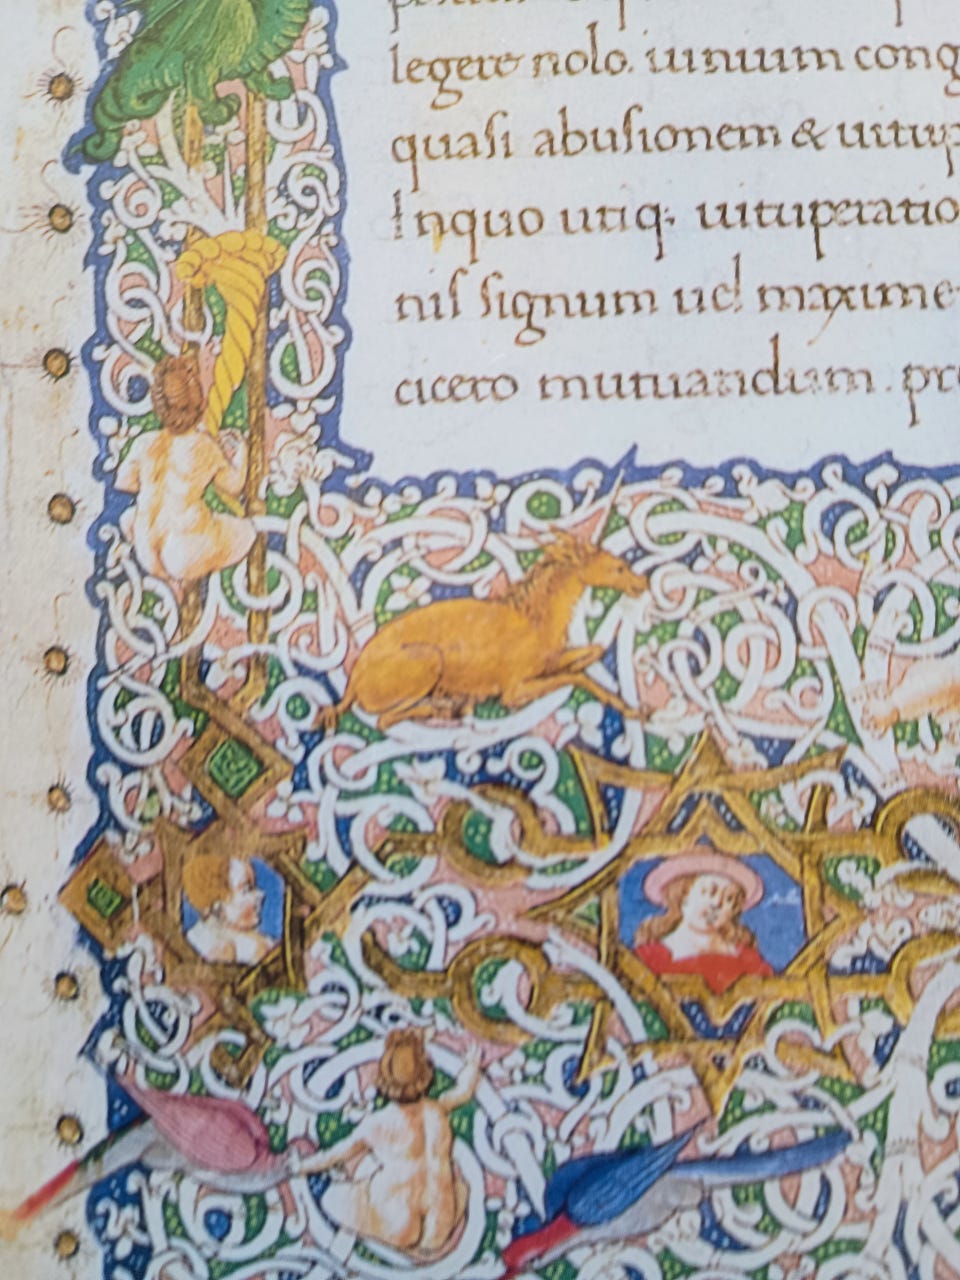 legere nolo. iunium cong
quasi abusionem & uitup
Inquo utiq; uituperatio
nis signum uel maxime
cicero mutuandum. pro